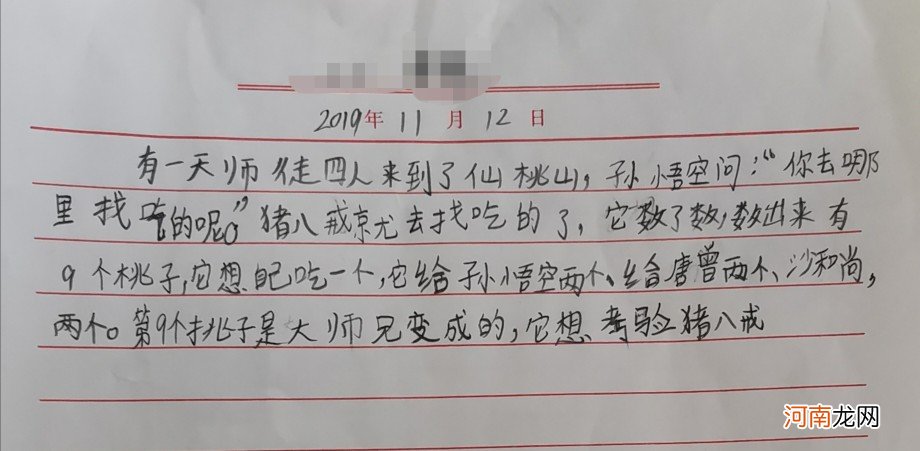 2019年 11 月 12 日
有一天师徒四人来到了仙桃山，孙悟空问：“你去哪
里找吃的呢。”猪八戒京尤去找吃的了，它数了数，数出来有
9个桃子，它想自己吃一个，它给孙悟空两个、给唐曾两个、沙和尚，
两个。第9个桃子是大师兄变成的，它想考验猪八戒
河南龙网